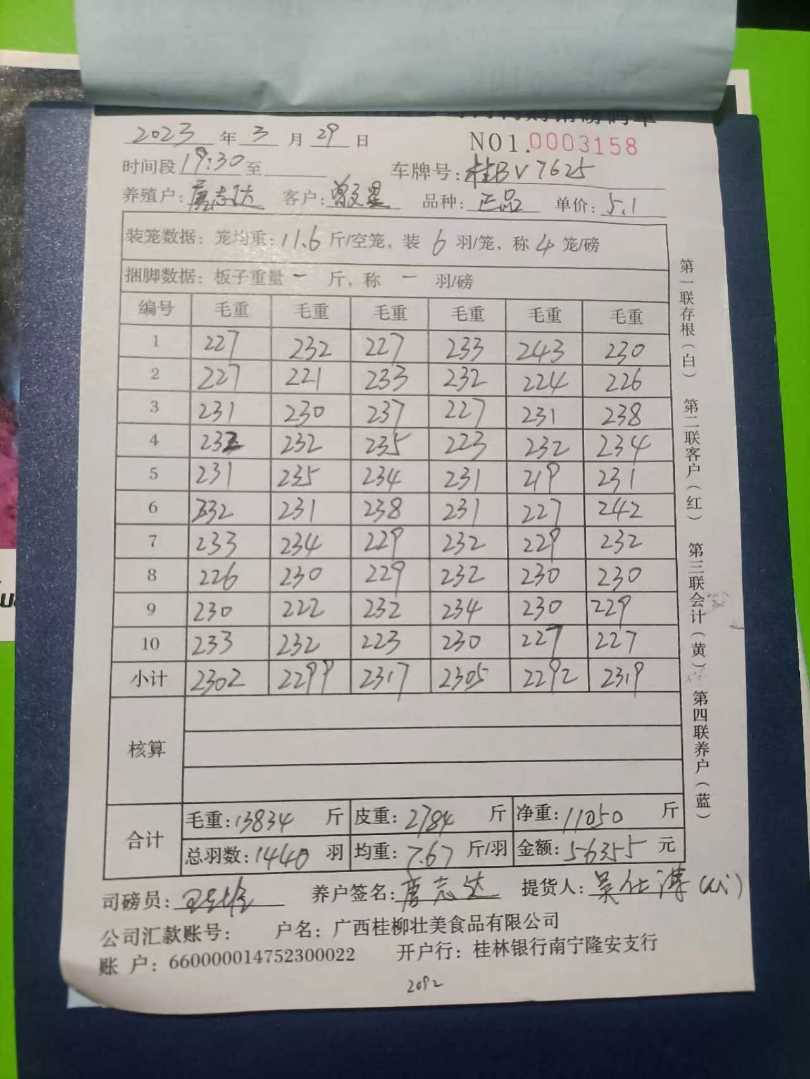 2023 年 3 月 29 日
NO1.0003158
时间段 19:30 至 车牌号: 桂BV7625
养殖户: 唐志达 客户: 品种: 正品 单价: 5.1
装笼数据: 笼均重: 11.6 斤/空笼, 装 6 羽/笼, 称 4 笼/磅
捆脚数据: 板子重量 一 斤, 称 一 羽/磅
编号 毛重 毛重 毛重 毛重 毛重 毛重
1 227 232 227 233 243 230
2 227 221 233 232 224 226
3 231 230 237 227 231 238
4 232 232 235 223 232 234
5 231 235 234 231 219 231
6 332 231 238 231 227 242
7 233 234 229 232 229 232
8 226 230 229 232 230 230
9 230 222 232 234 230 229
10 233 232 223 230 227 227
小计 2302 2299 2317 2305 2292 2319
核算
合计 毛重: 13834 斤 皮重: 2784 斤 净重: 11050 斤
总羽数: 1440 羽 均重: 7.67 斤/羽 金额: 56355 元
司磅员: 养户签名: 唐志达 提货人:
公司汇款账号: 户名: 广西桂柳壮美食品有限公司
账 户: 660000014752300022 开户行: 桂林银行南宁隆安支行
2092
第一联存根(白)
第二联客户(红)
第三联会计(黄)
第四联养户(蓝)